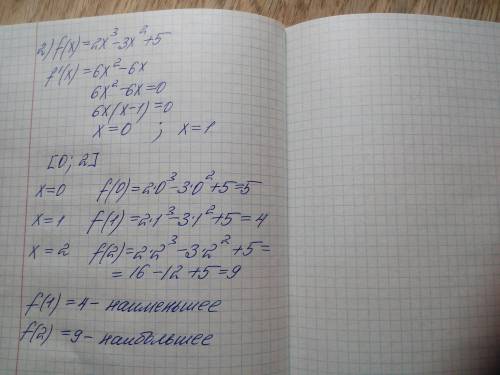 2) f(x)=2x³-3x²+5
f'(x)=6x²-6x
6x²-6x=0
6x(x-1)=0
x=0 ; x=1
[0; 2]
x=0 f(0)=2·0³-3·0²+5=5
x=1 f(1)=2·1³-3·1²+5=4
x=2 f(2)=2·2³-3·2²+5=
=16-12+5=9
f(1)=4- наименьшее
f(2)=9- наибольшее